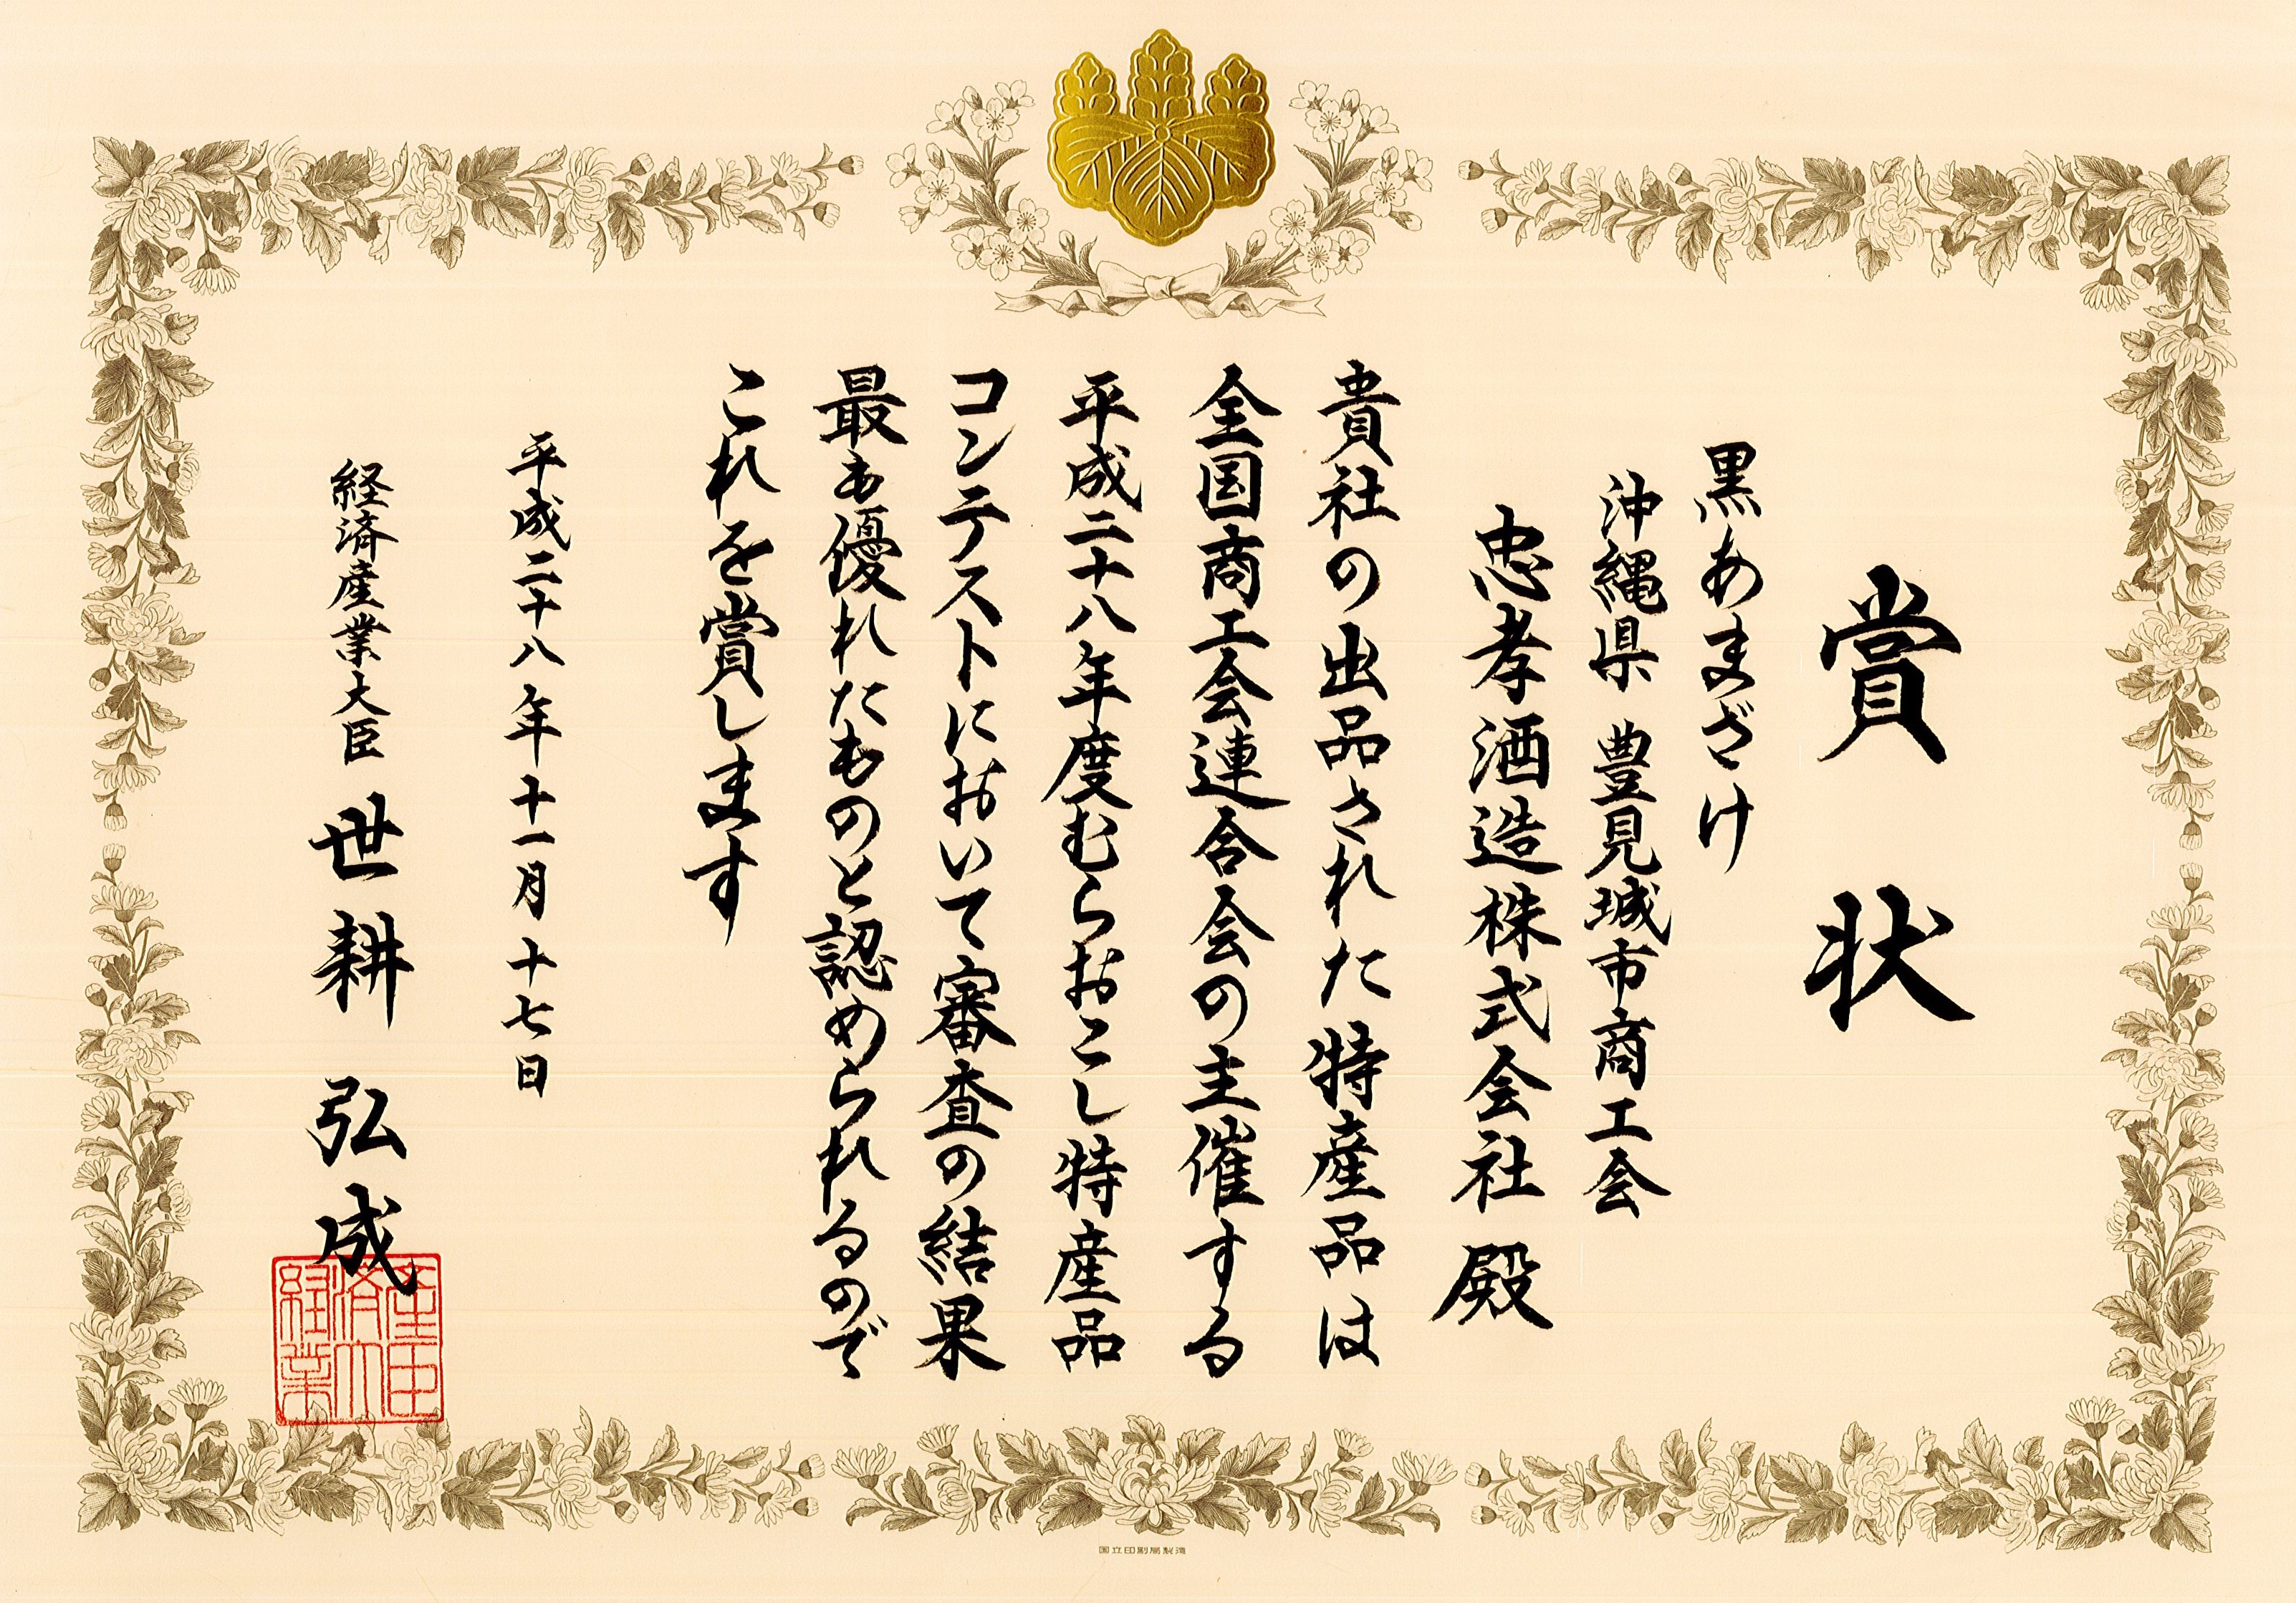 賞状
黒あまざけ
沖縄県 豊見城市商工会
忠孝酒造株式会社 殿
貴社の出品された特産品は
全国商工会連合会の主催する
平成二十八年度むらおこし特産品
コンテストにおいて審査の結果
最も優れたものと認められるので
これを賞します
平成二十八年十一月十七日
経済産業大臣 世耕弘成
国立印刷局製造